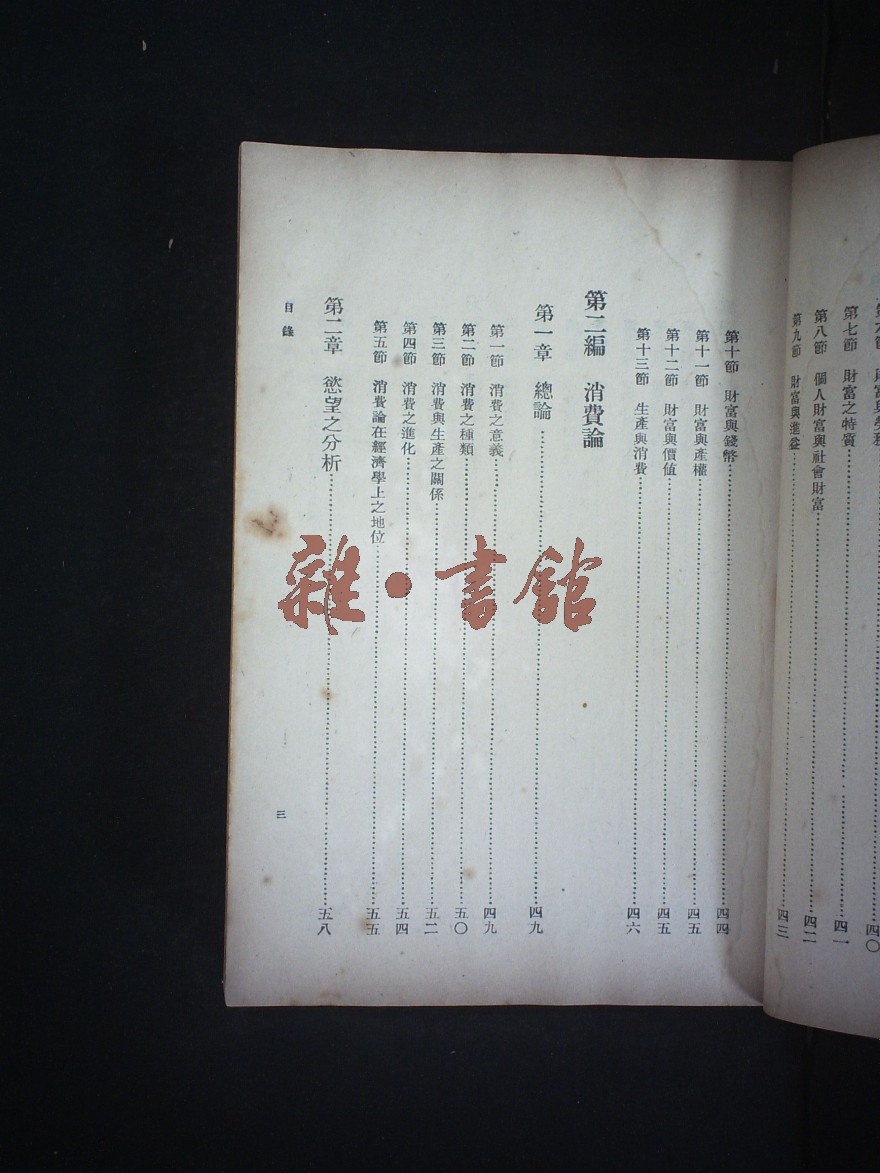 第七節 財富之特質 四一
第八節 個人財富與社會財富 四二
第九節 財富與進益 四三
第十節 財富與錢幣 四四
第十一節 財富與產權 四五
第十二節 財富與價值 四五
第十三節 生產與消費 四六
第二編 消費論
第一章 總論 四九
第一節 消費之意義 四九
第二節 消費之種類 五〇
第三節 消費與生產之關係 五二
第四節 消費之進化 五四
第五節 消費論在經濟學上之地位 五五
第二章 慾望之分析 五八
目錄
三
雜·書館